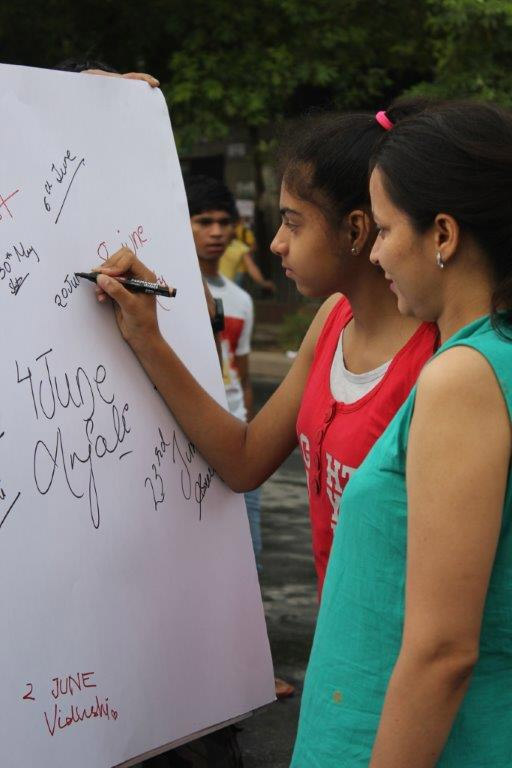 6th June
30th May
20 Jun
June
4 June
Anjali
23rd Jun
2 JUNE
Vidushi